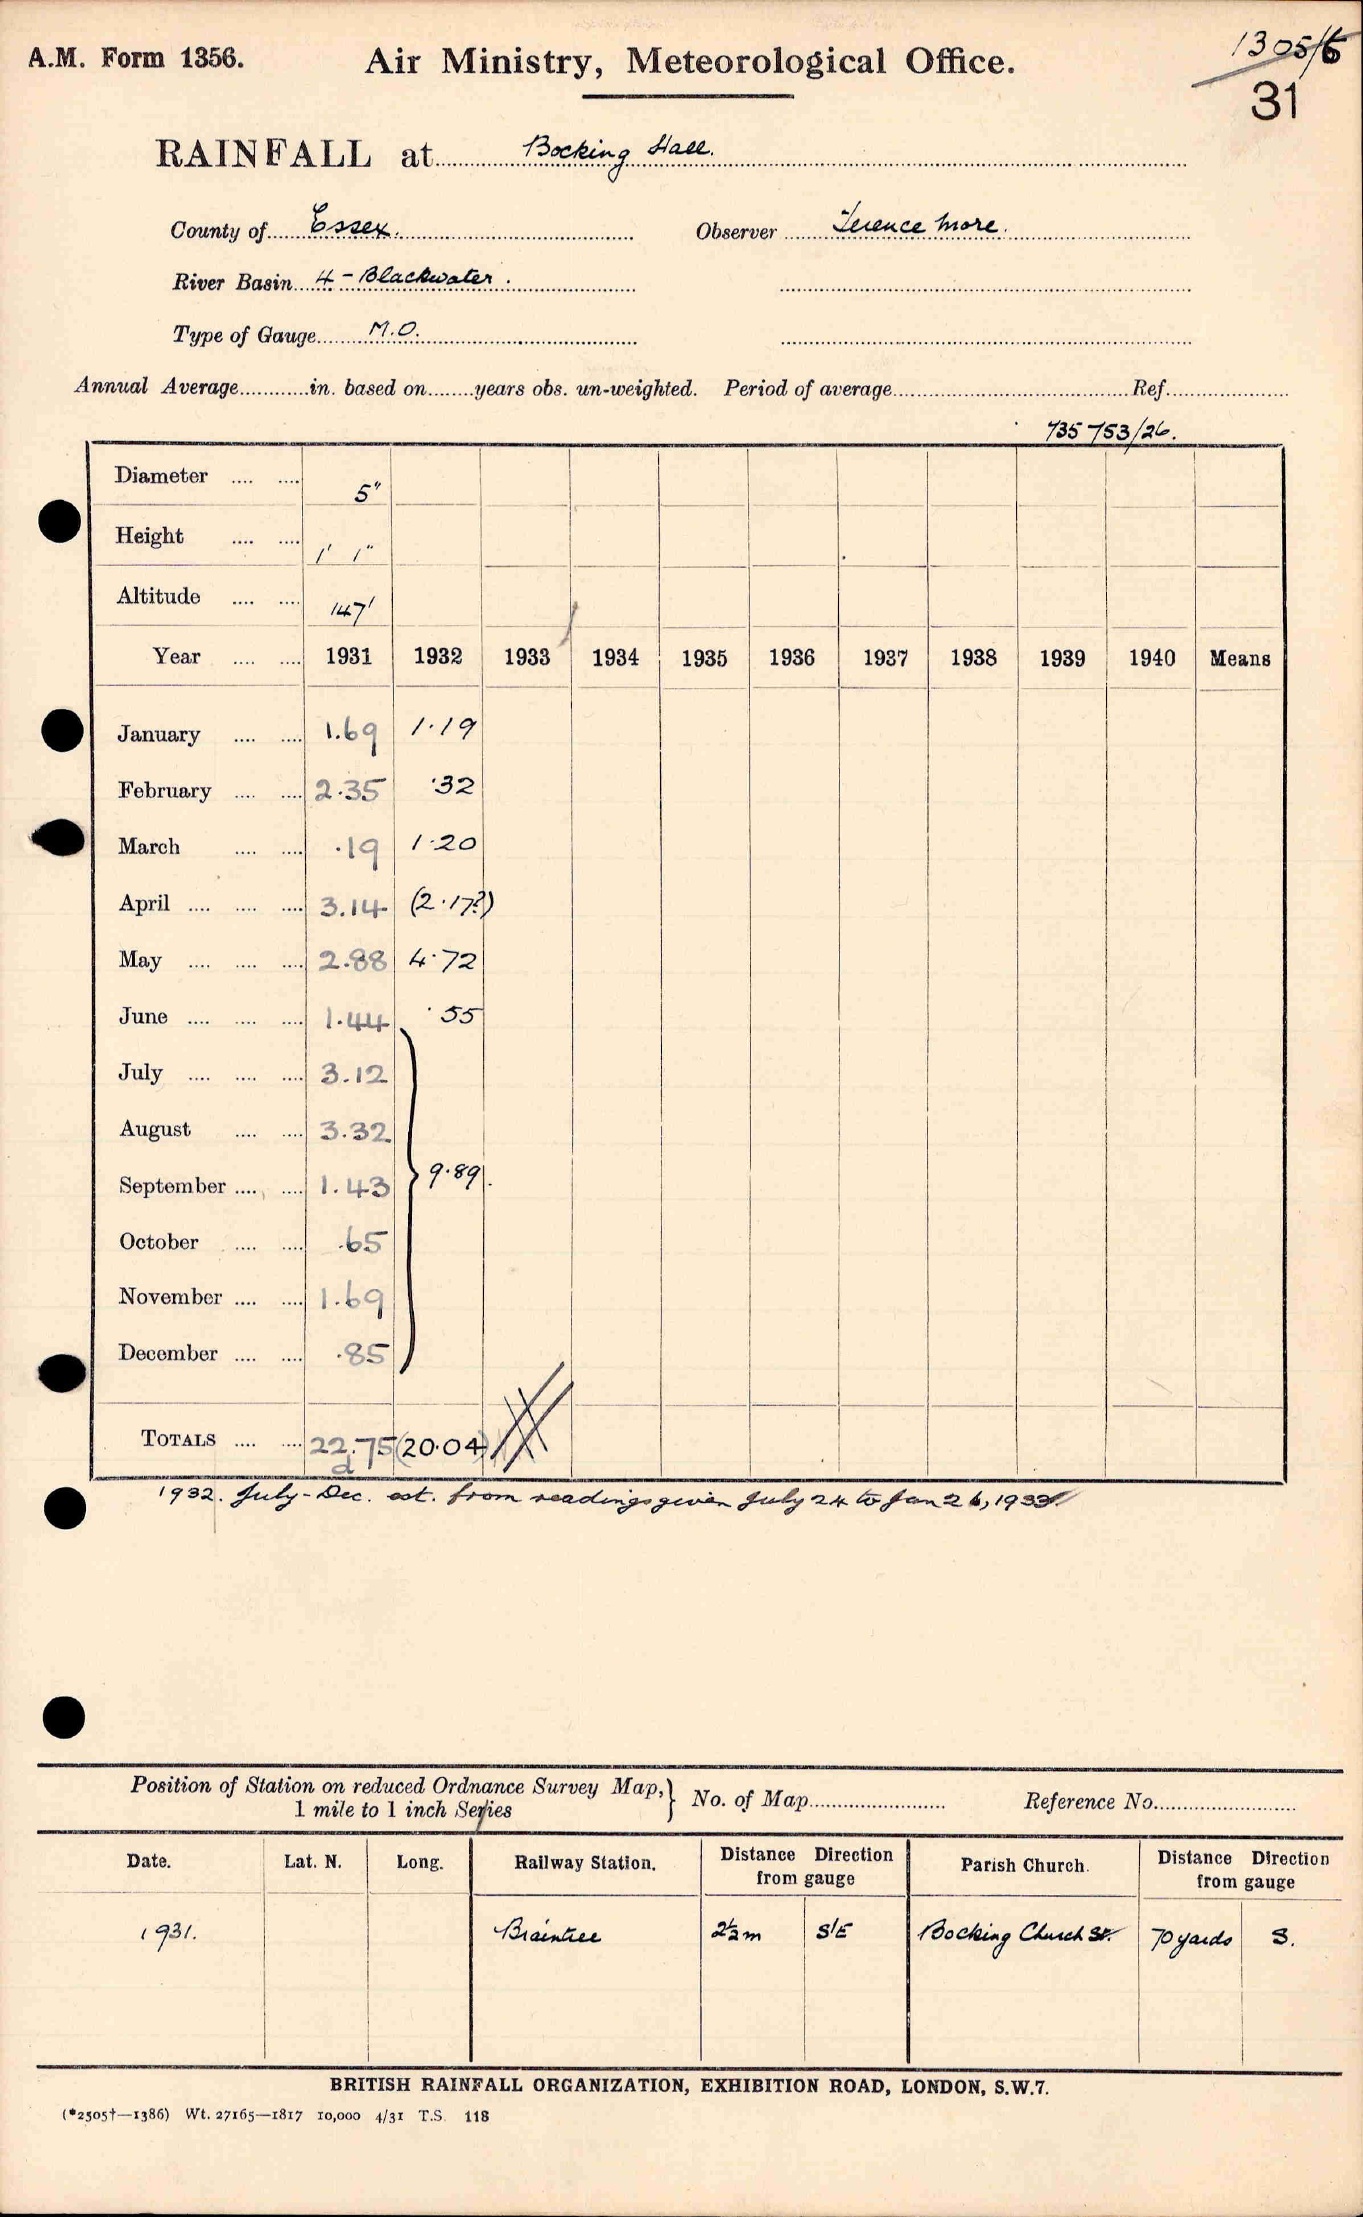 A.M. Form 1356.
Air Ministry, Meteorological Office.
1305/6
31
RAINFALL at Bocking Hall.
County of Essex. Observer Terence More.
River Basin 4 - Blackwater.
Type of Gauge M.O.
Annual Average in. based on years obs. un-weighted. Period of average Ref.
735753/26.
Diameter 5"
Height 1' 1"
Altitude 147'
Year 1931 1932 1933 1934 1935 1936 1937 1938 1939 1940 Means
January 1.69 1.19
February 2.35 .32
March .19 1.20
April 3.14 (2.17?)
May 2.88 4.72
June 1.44 .55
July 3.12
August 3.32
September 1.43 9.89
October .65
November 1.69
December .85
TOTALS 22.75 (20.04)
d
1932. July-Dec. est. from readings given July 24 to Jan 26, 1933
Position of Station on reduced Ordnance Survey Map, } No. of Map Reference No.
1 mile to 1 inch Series
Date. Lat. N. Long. Railway Station. Distance Direction from gauge Parish Church. Distance Direction from gauge
1931. Braintree 2½m S'E Bocking Church St. 70 yards S.
BRITISH RAINFALL ORGANIZATION, EXHIBITION ROAD, LONDON, S.W.7.
(*2505†—1386) Wt. 27165—1817 10,000 4/31 T.S. 118